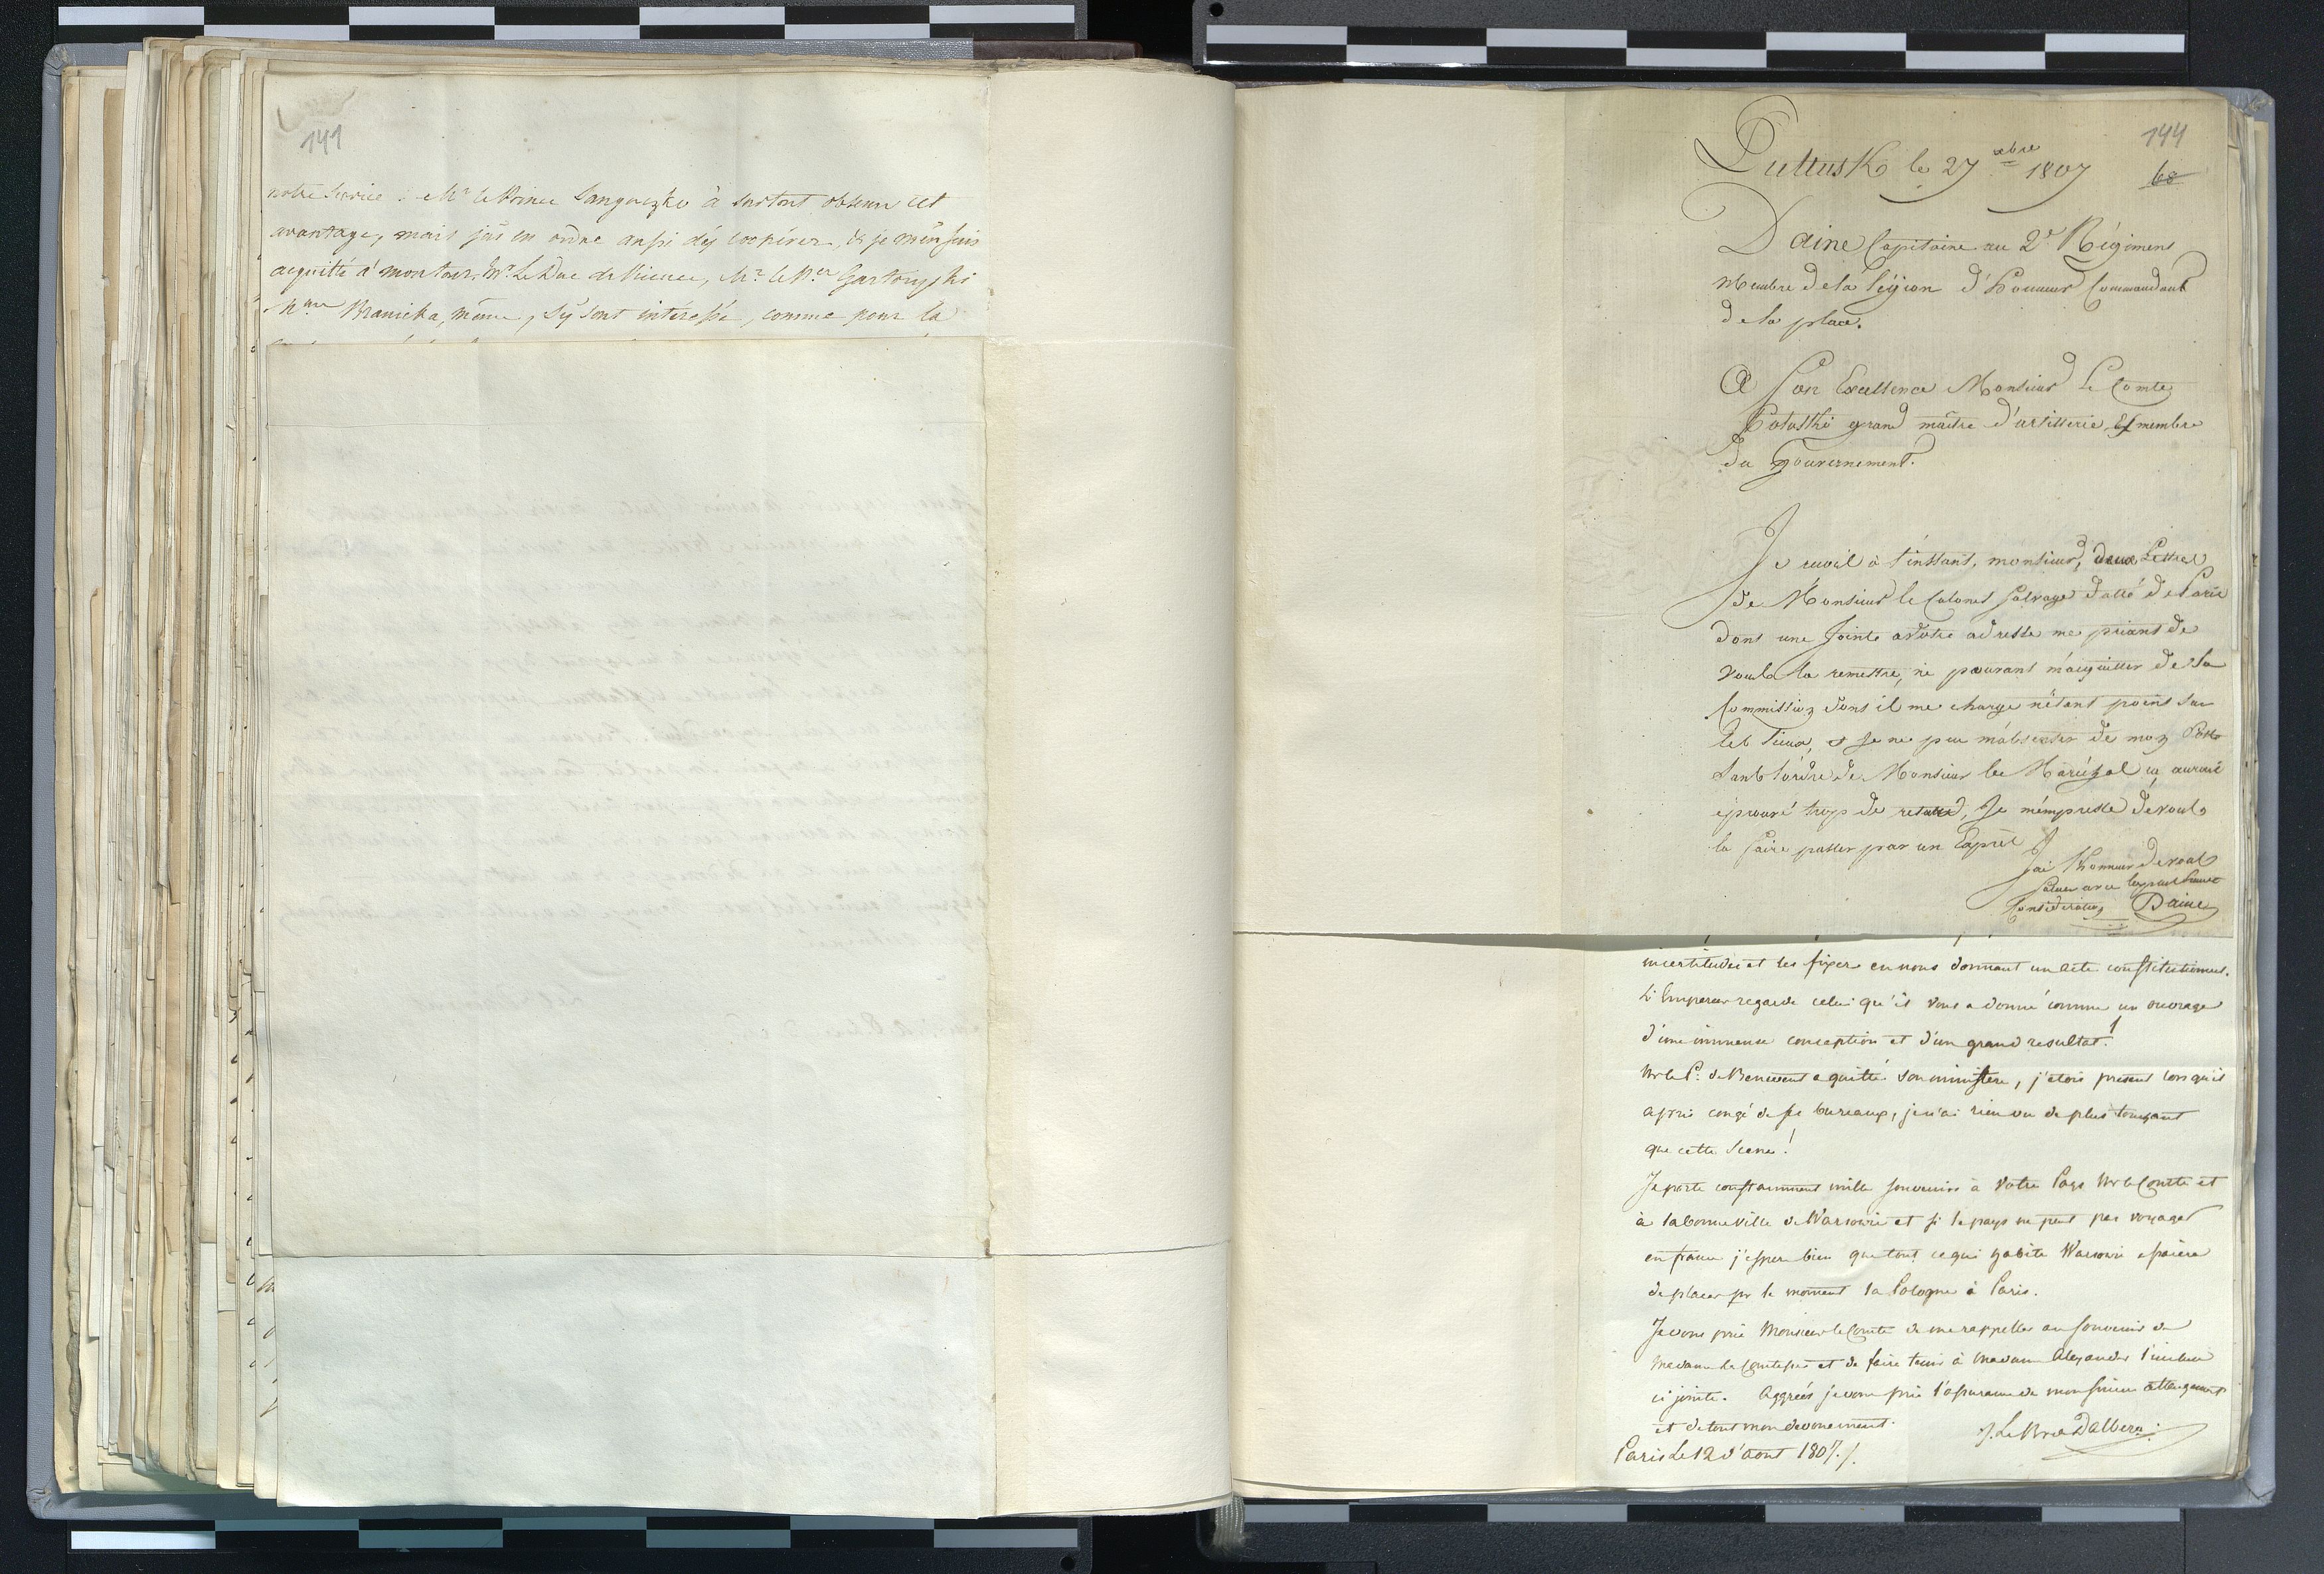 141
notre Service : Mr le Prince Sanguszko à surtout obtenu cet
avantage, mais j'us en ordre aussi d'y coopérer, & je m'en suis
acquitté à mon tour. Mr. Le Duc de Vicence, Mr. le Pce Czartoryski
Mme Branicka, même, s'y sont intéressé, comme pour la
144
68
Pultusk le 27 xbre 1807
Daine Capitaine au 2e Régiment
Membre de la légion d'honneur Commandant
de la place.
A Son Excellence Monsieur Le Comte
Potoski grand maître d'artillerie Et membre
du Gouvernement.
Je recoi à l'instant, monsieur, deux Lettres
de Monsieur le Colonel Salvage datté de Paris
dont une Jointe a votre adresse me priant de
vous la remettre, ne pouvant m'acquitter de la
Commission dont il me charge n'étant point sur
les lieux, & Je ne pui m'absenter de mon Poste
sans l'ordre de Monsieur le Maréchal
éprouvé trop de retard, Je m'empresse de vous
la faire passer par un Exprès
J'ai l'honneur de vous
saluer avec la plus haute
Considération Daine
incertitudes et les fixer en nous donnant un acte constitutionnel.
L'Empereur regarde celui qu'il vous a donné comme un ouvrage
d'une immense conception et d'un grand resultat!
Mr le P. de Benevent a quitté son ministère, j'etois present lorsqu'il
a pris congé de ses bureaux, je n'ai rien vu de plus touchant
que cette Scene!
Je porte constamment mille souvenirs à Votre Pays Mr le Comte et
à la bonne ville de Varsovie et si le pays ne peut pas voyager
en france j'espere bien que tout ce qui habite Warsovie
de placer pr le moment la Pologne à Paris.
Je vous prie Monsieur le Comte de me rappeller au souvenir de
Madame la Comtesse et de faire tenir à Madame Alexandre l'incluse
ci jointe. Aggréés je vous prie l'assurance de mon sincere attachement
et de tout mon devouement.
J. Le Bron Dalberg.
Paris Le 12 d'aout 1807./.